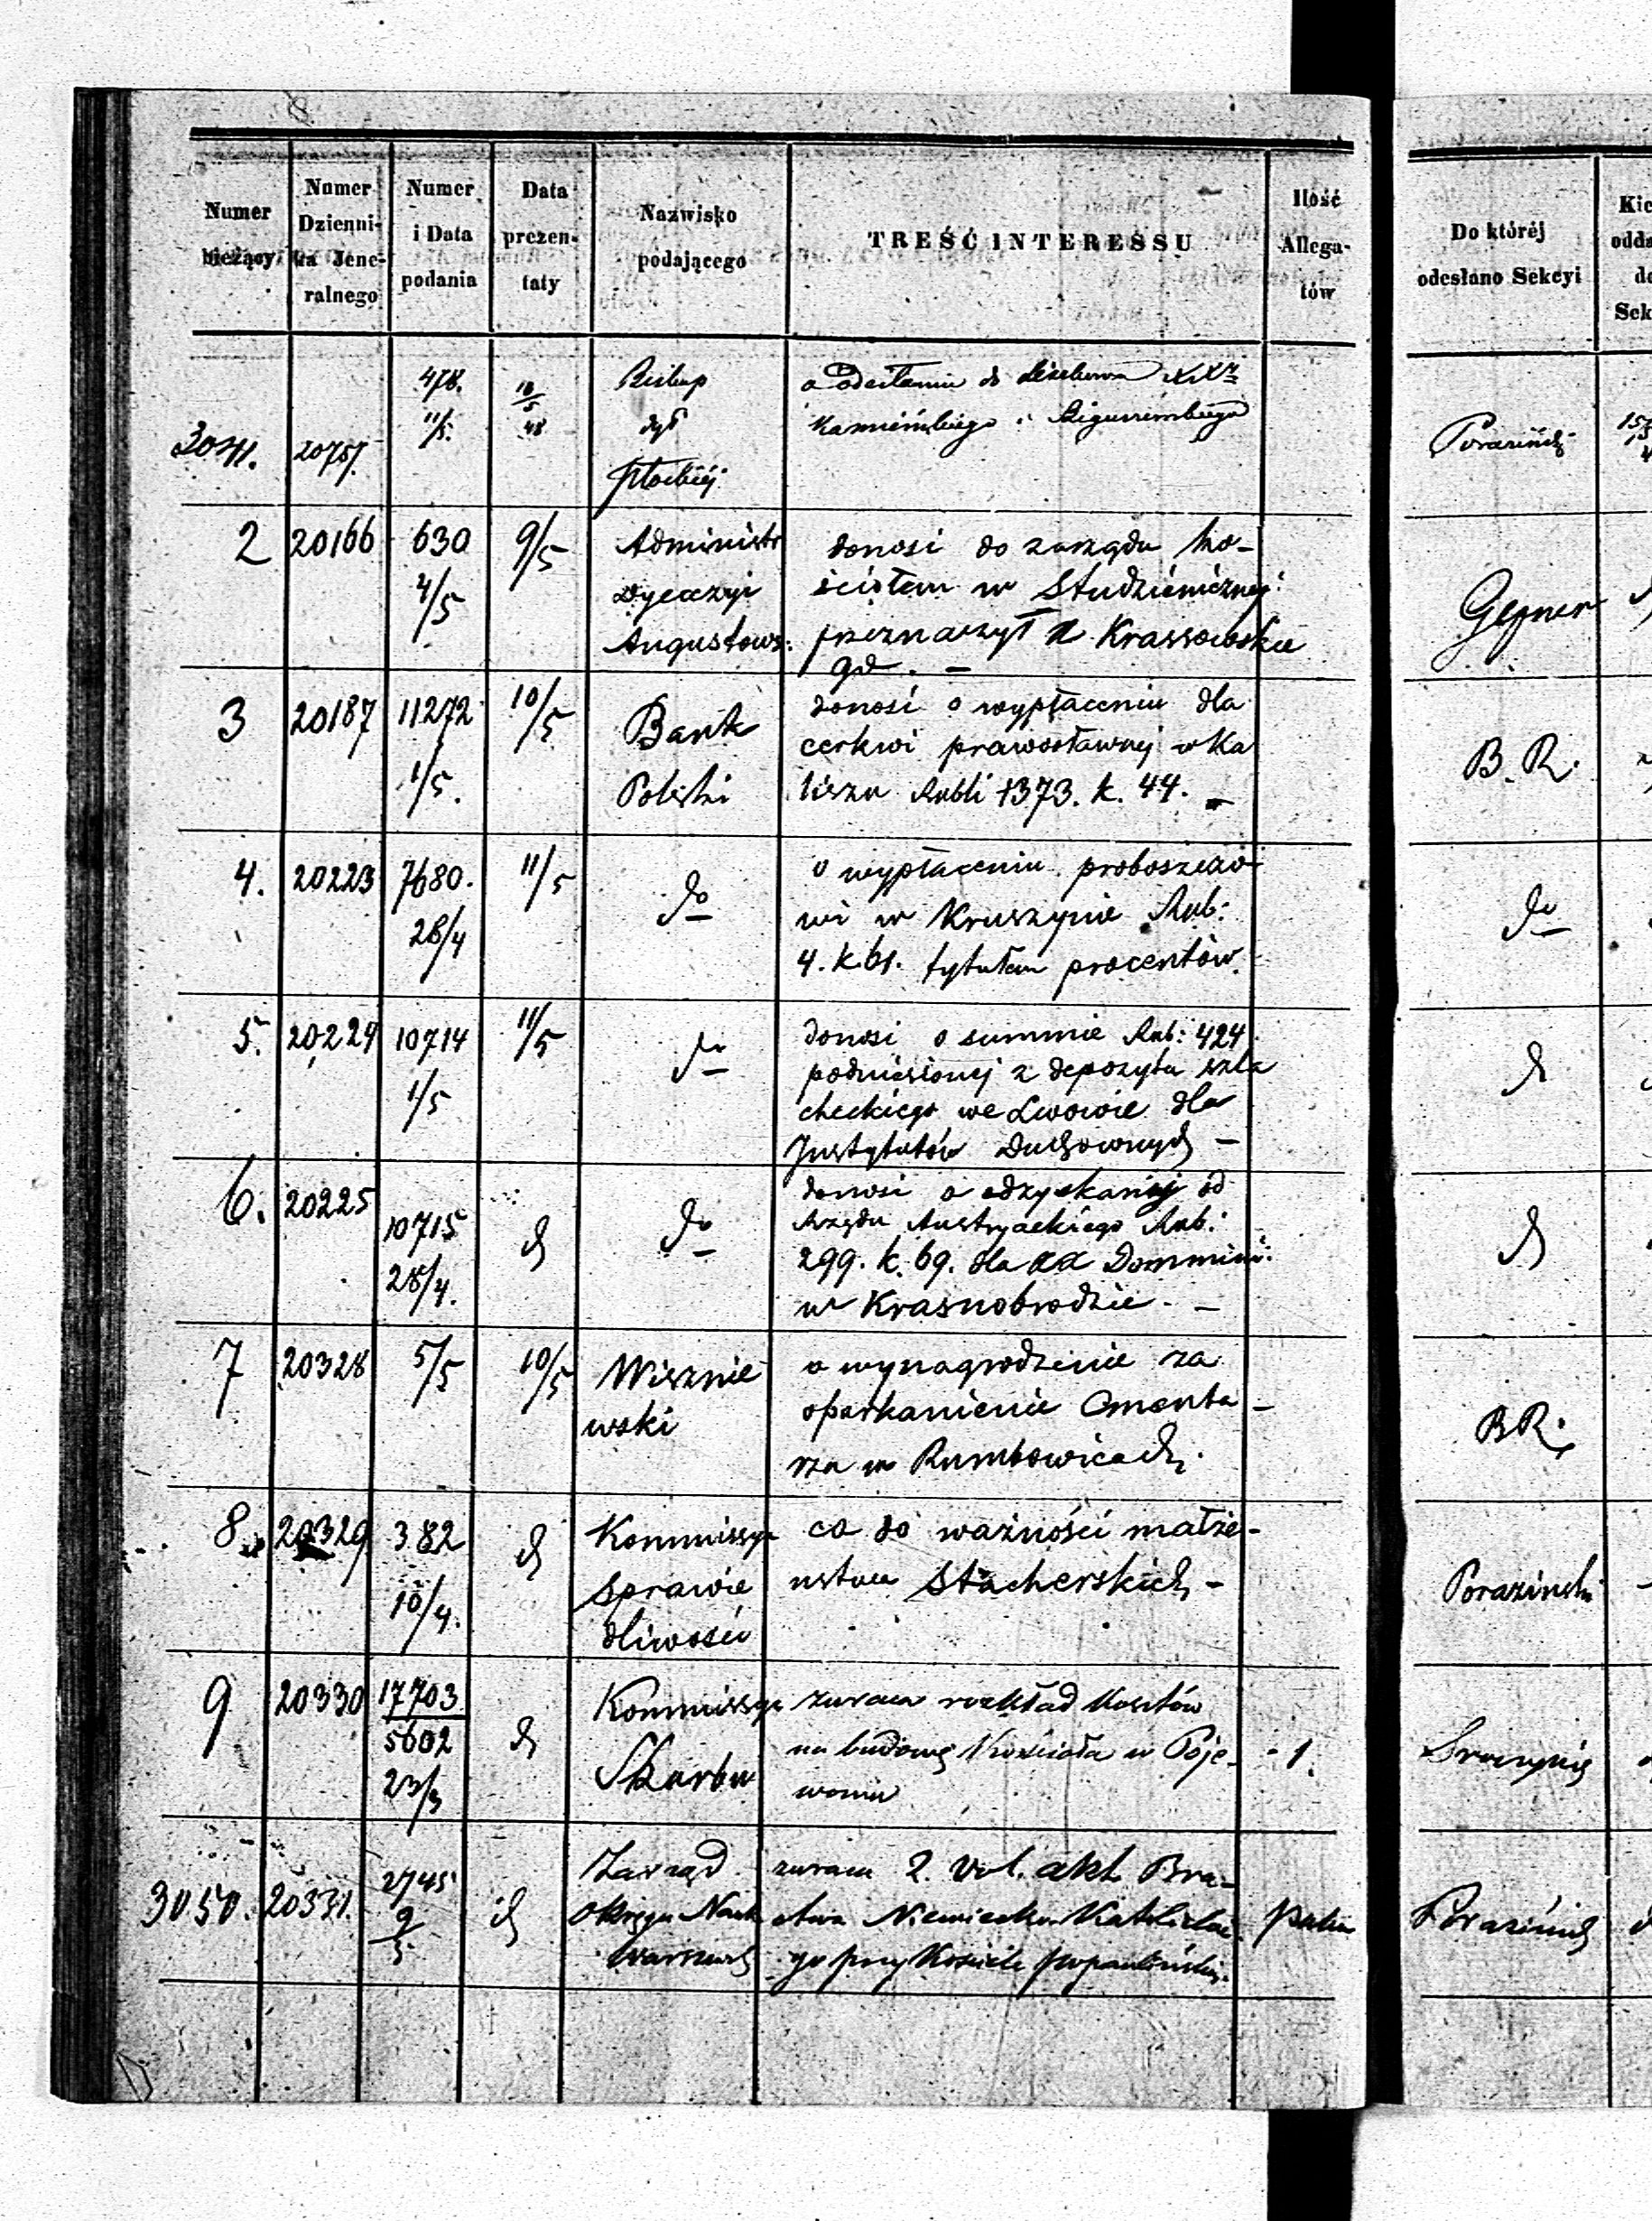 Numer bieżący
Numer Dziennika Jeneralnego
Numer i Data podania
Data prezentaty
Nazwisko podającego
TREŚĆ INTERESSU
Ilość Allegatów
Do któréj odesłano Sekcyi
3041. 20757. 478. 11/5. 10/5 48
Biskup
Dyec
Płockiéj
o odesłaniu do
Kamieńskiego i
Poraziński
2 20166 630 4/5 9/5
Administr
Dyecezyi
Augustows:
donosi do zarządu Ko-
ściołem w Studzienicznej
przeznaczył X Krassowskie
go. –
Gepner
3 20187 11272 1/5. 10/5
Bank
Polski
donosi o wypłaceniu dla
cerkwi prawosławnej w Ka
liszu Rubli 1373. k. 44. –
B. R.
4. 20223 7680. 28/4 11/5
do
o wypłaceniu proboszczo-
wi w Kruszynie Rub:
4. k 61. tytułem procentów.
do
5. 20224 10714 1/5 11/5
do
donosi o summie Rub: 424
podniesionej z depozytu szla
checkiego we Lwowie dla
Instytutów Duchownych –
d
6. 20225 10715 28/4. d
do
donosi o odzyskaniej od
Rządu Austryackiego Rub:
299. k. 69. dla XX Dominik:
w Krasnobrodzie. –
d
7 20328 5/5 10/5
Wisznie
wski
o wynagrodzenie za
oparkanienie Cmenta-
rza w Rumbowicach.
BR.
8. 20329 382 10/4. d
Kommissya
Sprawie
dliwości
co do ważności małże-
ństwa Stacherskich –
Poraziński
9 20330 17703 5602 23/3 d
Kommissya
Skarbu
zwraca rozkład Kosztów
na budowę Kościoła w Poje-
woniu
1.
3050. 20331. 2745 9/5 d
Zarząd
Okręgu Nauk
Warszaws
zwraca 2. Vol. akt Bra-
ctwa Niemiecko Katolickie
go przy Kościele popaulińskim.
Poraziński